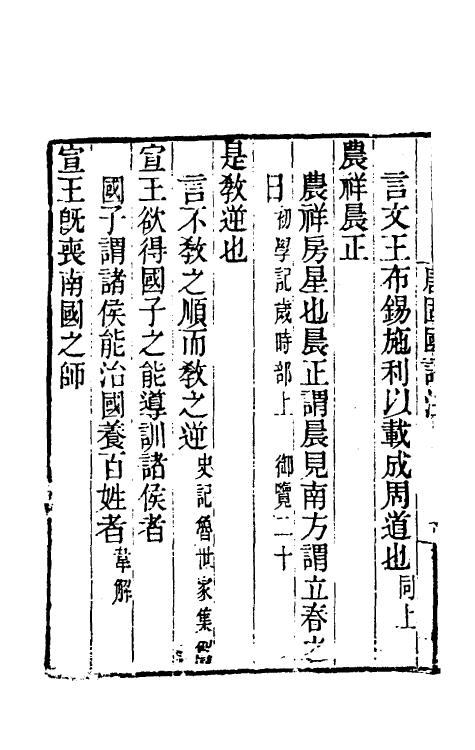 言文王布錫施利以載成周道也同上
農祥晨正
農祥房星也晨正謂晨見南方謂立春之
日初學記歲時部上 御覽二十
是教逆也
言不教之順而教之逆史記魯世家集解
宣王欲得國子之能導訓諸侯者
國子謂諸侯能治國養百姓者韋解
宣王旣喪南國之師